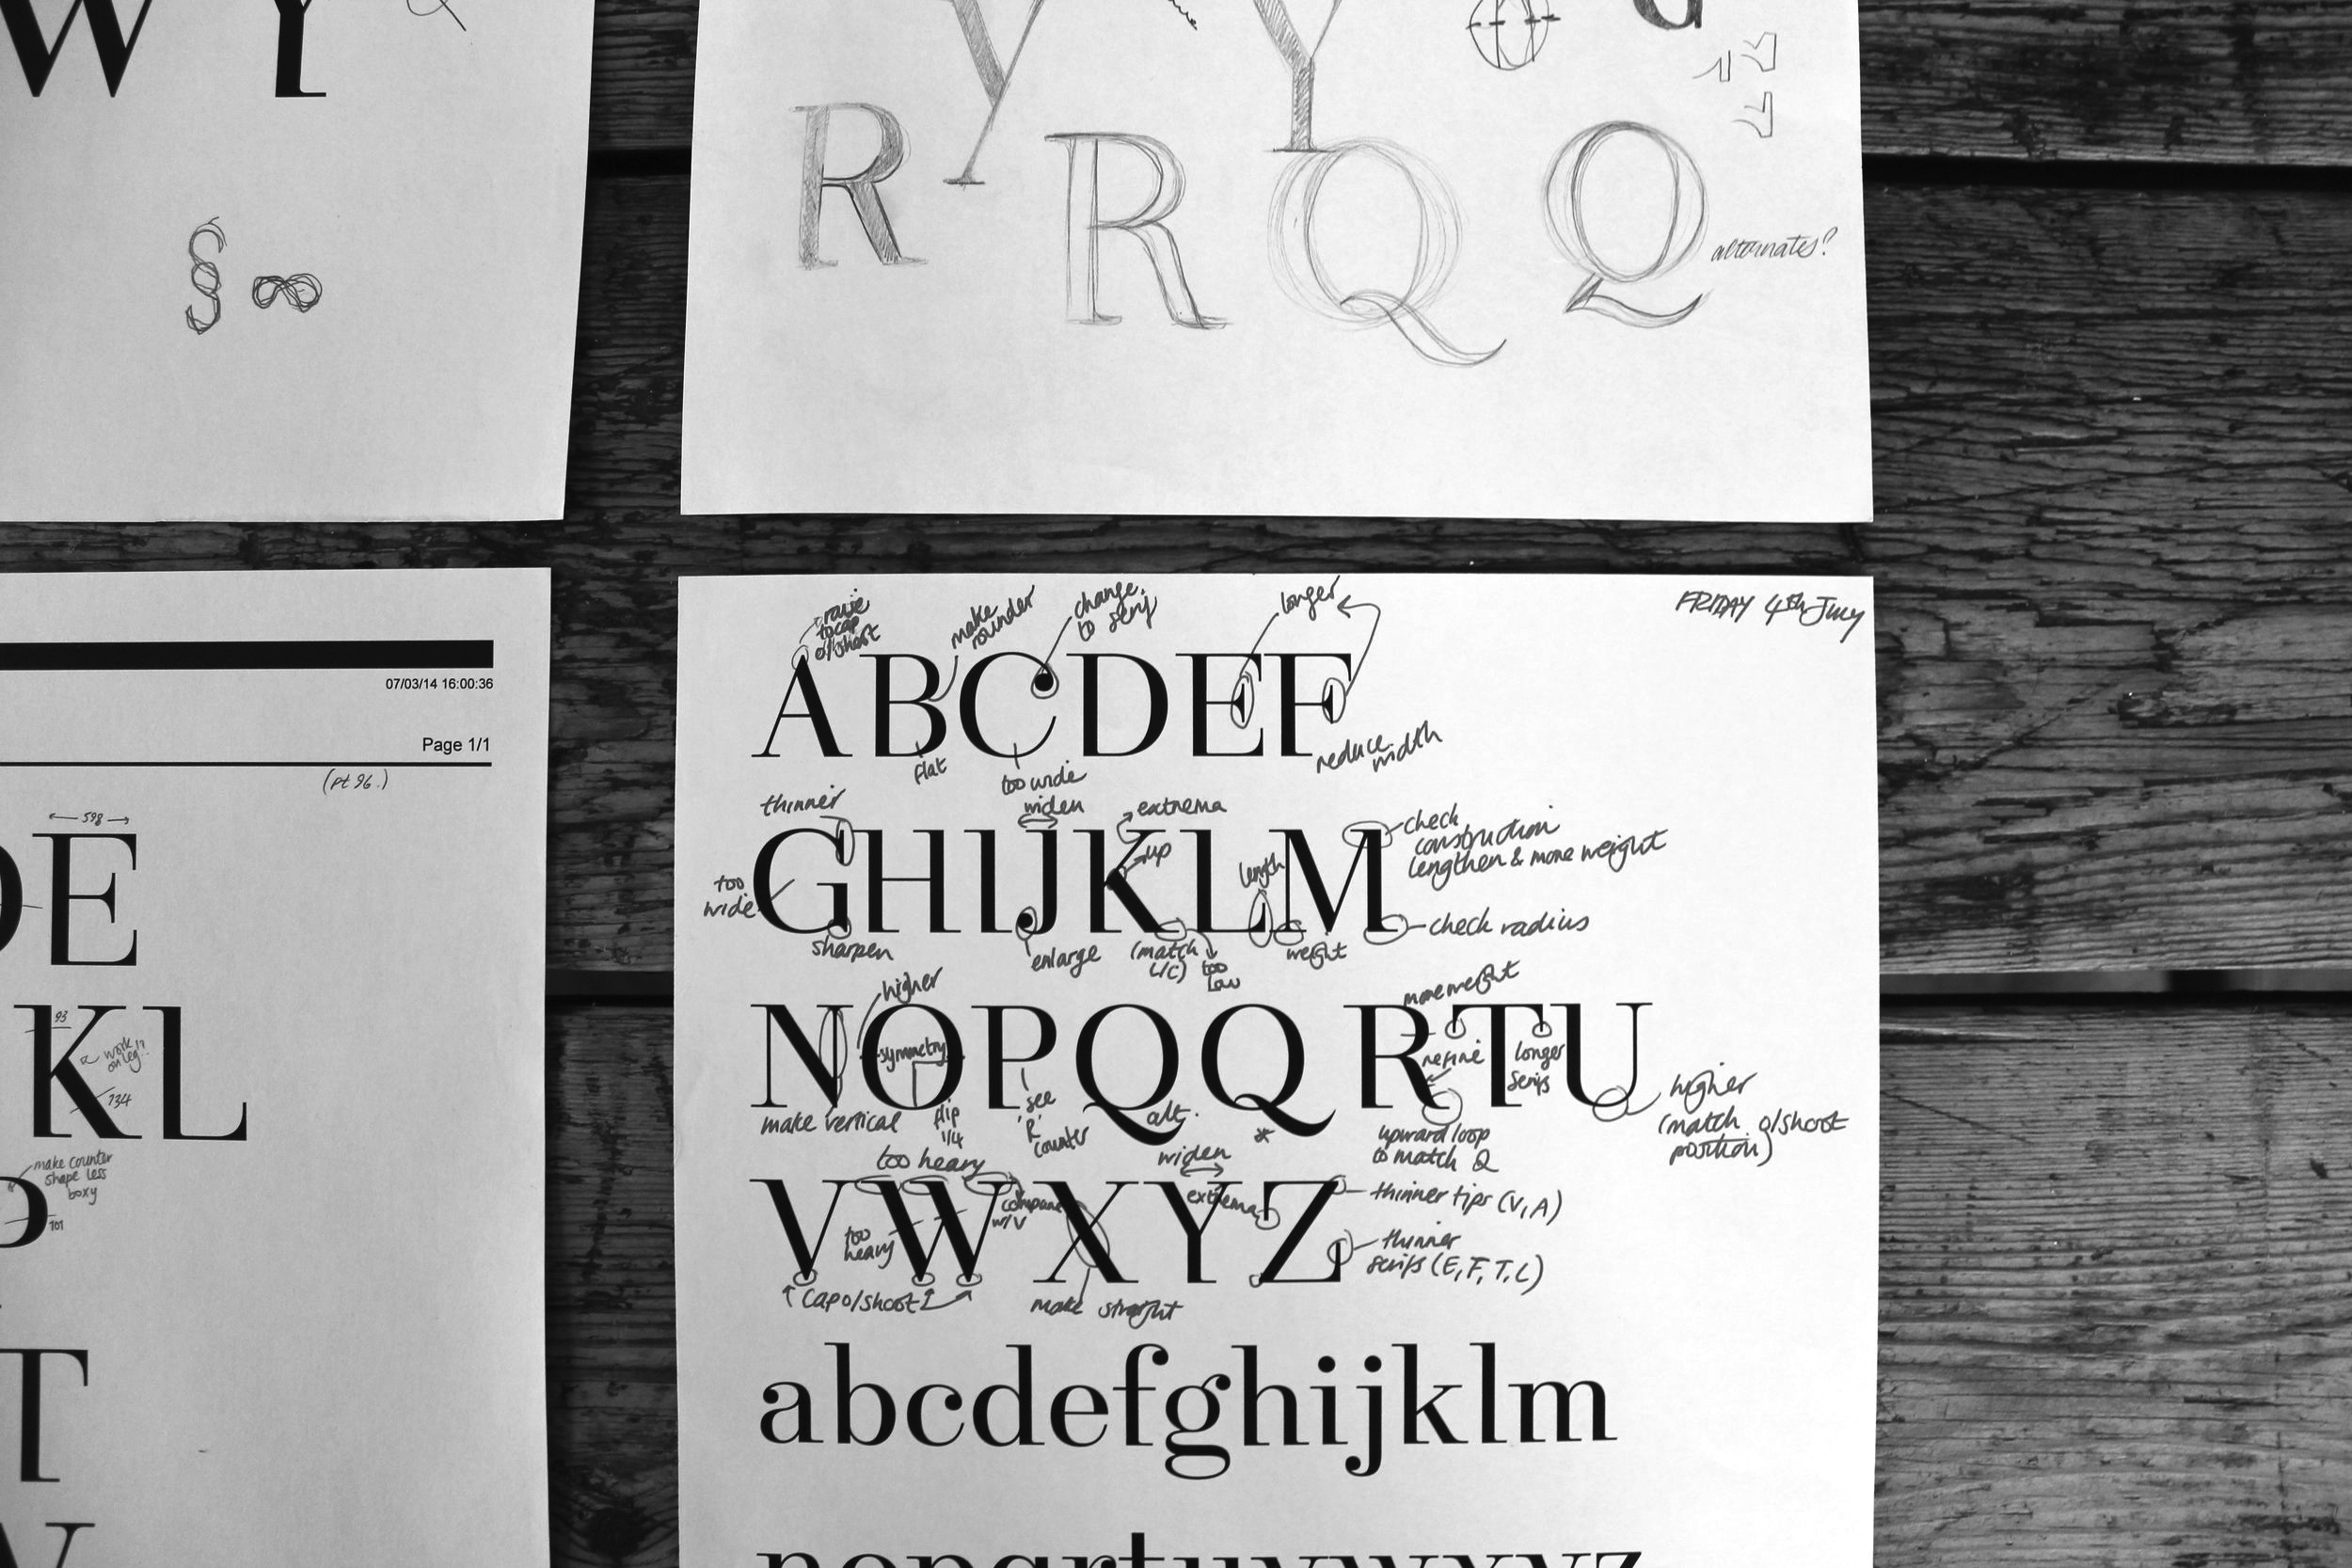 W Y
§ ∞
Y Y
R R Q Q
alternates?
07/03/14 16:00:36
Page 1/1
(pt 96.)
598
DE
93
KL
work
on leg!?
134
make counter
shape less
boxy
P
101
T
FRIDAY 4th July
raise
to cap
o/shoot
make
rounder
change
to serif
longer
ABCDEF
flat
too wide
reduce
width
thinner
widen
extrema
check
construction
lengthen & more weight
up
length
too
wide
GHIJKLM
check radius
sharpen
enlarge
(match
L/C)
too
low
weight
higher
more weight
symmetry
refine
longer
serifs
NOPQQ RTU
make vertical
flip
1/4
see
'R'
counter
alt.
*
upward loop
to match Q
higher
(match o/shoot
position)
too heavy
widen
compare
w/V
extrema
thinner tips (V, A)
too
heavy
VWXYZ
thinner
serifs (E, F, T, L)
cap o/shoot
make straight
abcdefghijklm
nopqrtuvwxyz